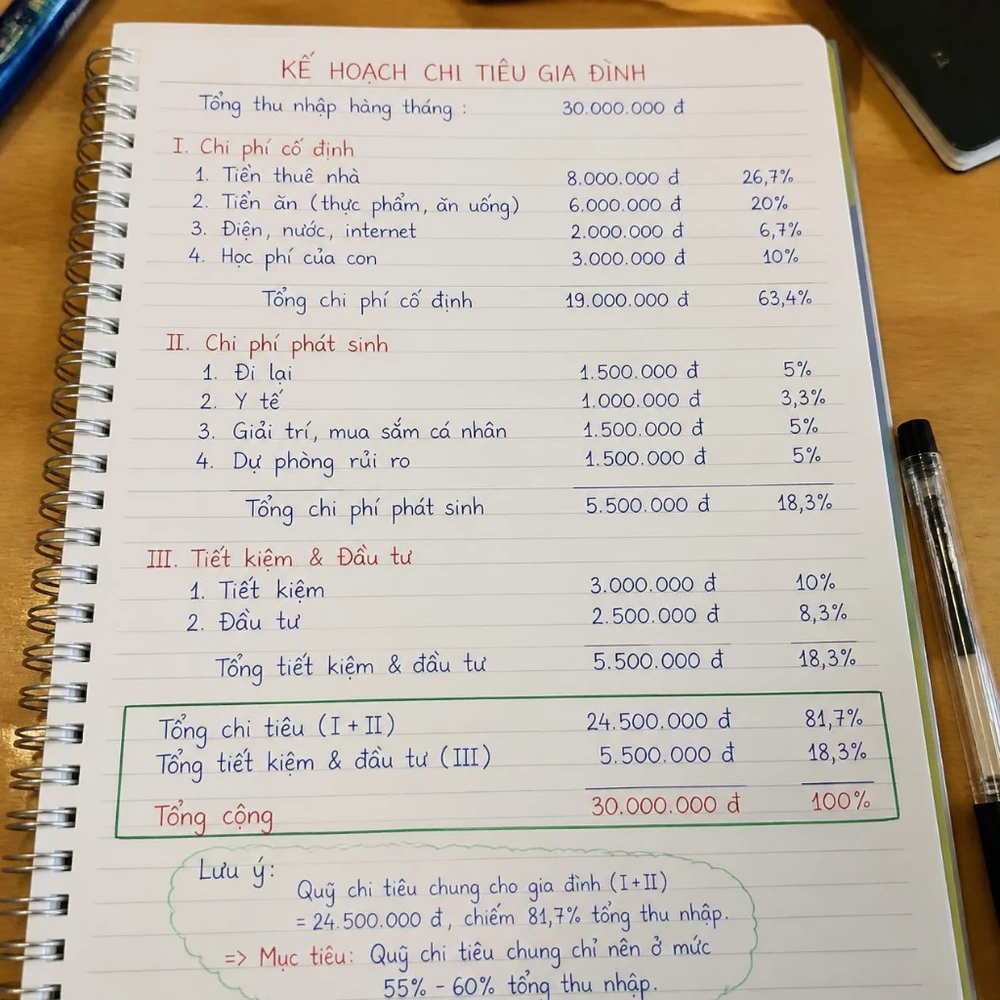 KẾ HOẠCH CHI TIÊU GIA ĐÌNH
Tổng thu nhập hàng tháng : 30.000.000 đ
I. Chi phí cố định
1. Tiền thuê nhà 8.000.000 đ 26,7%
2. Tiền ăn (thực phẩm, ăn uống) 6.000.000 đ 20%
3. Điện, nước, internet 2.000.000 đ 6,7%
4. Học phí của con 3.000.000 đ 10%
Tổng chi phí cố định 19.000.000 đ 63,4%
II. Chi phí phát sinh
1. Đi lại 1.500.000 đ 5%
2. Y tế 1.000.000 đ 3,3%
3. Giải trí, mua sắm cá nhân 1.500.000 đ 5%
4. Dự phòng rủi ro 1.500.000 đ 5%
Tổng chi phí phát sinh 5.500.000 đ 18,3%
III. Tiết kiệm & Đầu tư
1. Tiết kiệm 3.000.000 đ 10%
2. Đầu tư 2.500.000 đ 8,3%
Tổng tiết kiệm & đầu tư 5.500.000 đ 18,3%
Tổng chi tiêu (I + II) 24.500.000 đ 81,7%
Tổng tiết kiệm & đầu tư (III) 5.500.000 đ 18,3%
Tổng cộng 30.000.000 đ 100%
Lưu ý:
Quỹ chi tiêu chung cho gia đình (I+II)
= 24.500.000 đ, chiếm 81,7% tổng thu nhập.
=> Mục tiêu: Quỹ chi tiêu chung chỉ nên ở mức
55% - 60% tổng thu nhập.